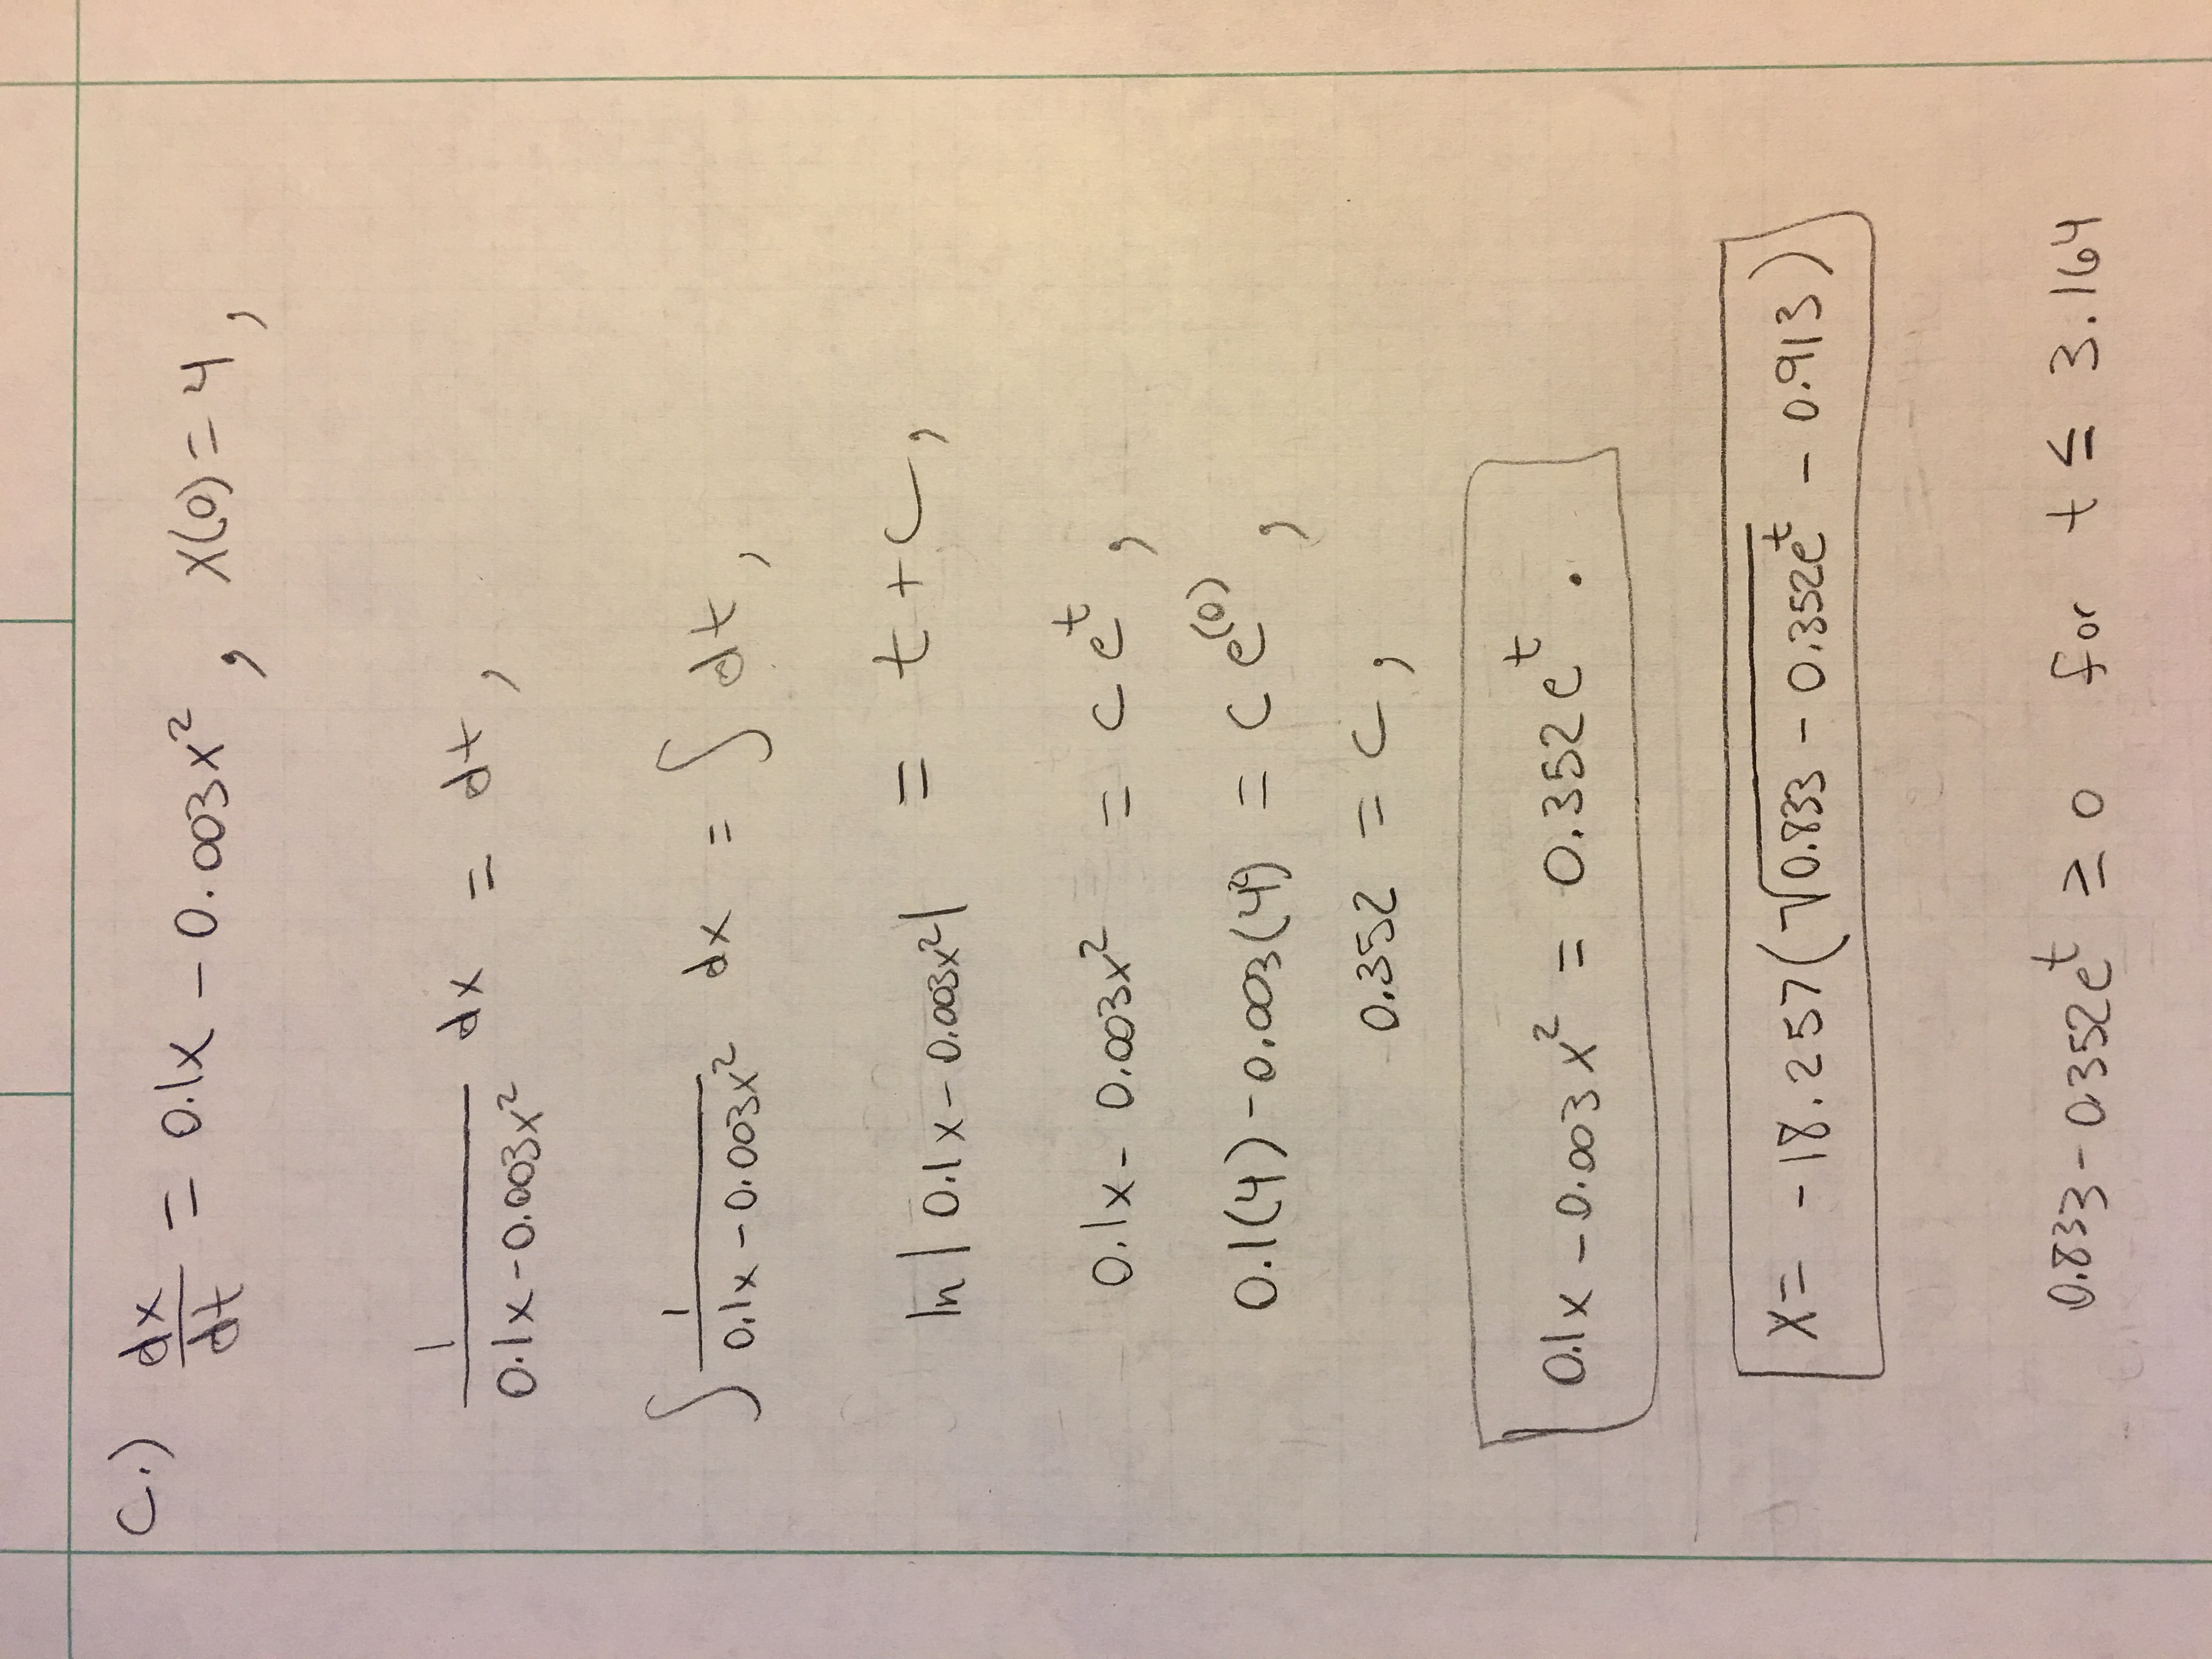 C.) dx/dt = 0.1x - 0.003x², x(0) = 4,
1/(0.1x - 0.003x²) dx = dt,
∫ 1/(0.1x - 0.003x²) dx = ∫ dt,
ln | 0.1x - 0.003x² | = t + c,
0.1x - 0.003x² = c e^t,
0.1(4) - 0.003(4²) = c e^(0),
0.352 = c,
0.1x - 0.003x² = 0.352e^t.
x = -18.257(√(0.833 - 0.352e^t) - 0.913)
0.833 - 0.352e^t ≥ 0 for t ≤ 3.164